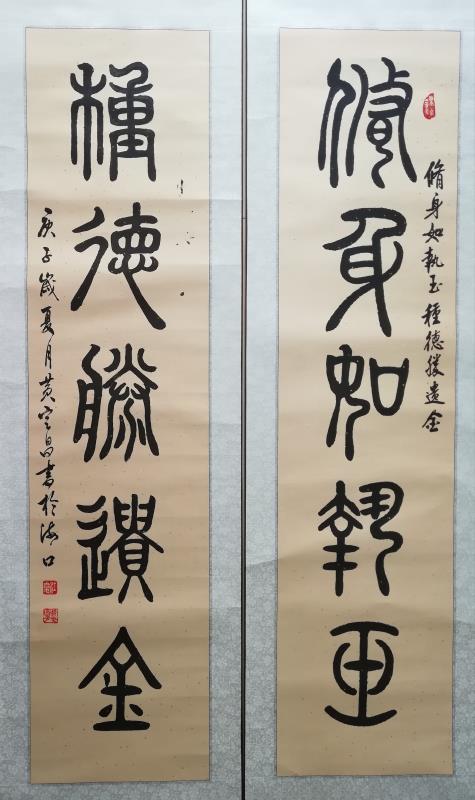 脩身如執玉種德勝遺金
脩身如執玉
種德勝遺金
庚子歲夏月黄昌書於海口